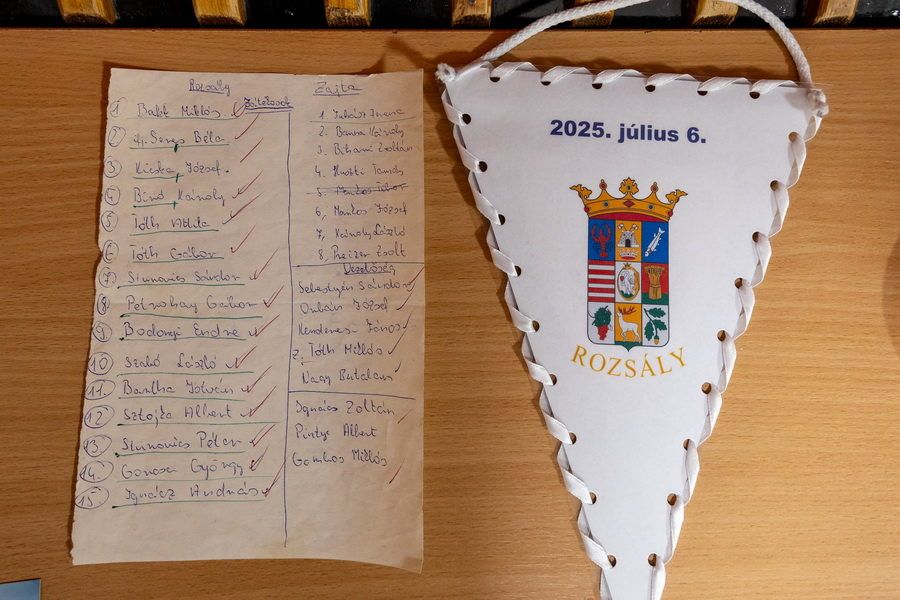 Rozsály
Játékosok
1 Bakk Miklós
2 Seres Béla
3 Kicska József.
4 Bíró Károly
5 Tóth Attila
6 Tóth Gábor
7 Stunovics Sándor
8 Petrohay Gábor
9 Bodonyi Endre
10 Szabó László
11. Bartha István
12 Sztojka Albert
13. Stunovics Péter
14. Goncsa György
15. Ignácz András
Zajta
1. Juhász Imre
2. Károly
3. Bihami Zoltán
4. Tamás
5.
6, József
7, Károly László
8, Preczer Zsolt
Vezetőség
Sebestyén Sándor
Orbán József
Kenderesi János
Z. Tóth Miklós
Nagy Bertalan
Ignács Zoltán
Pintye Albert
Gombos Miklós
2025. július 6.
ROZSÁLY